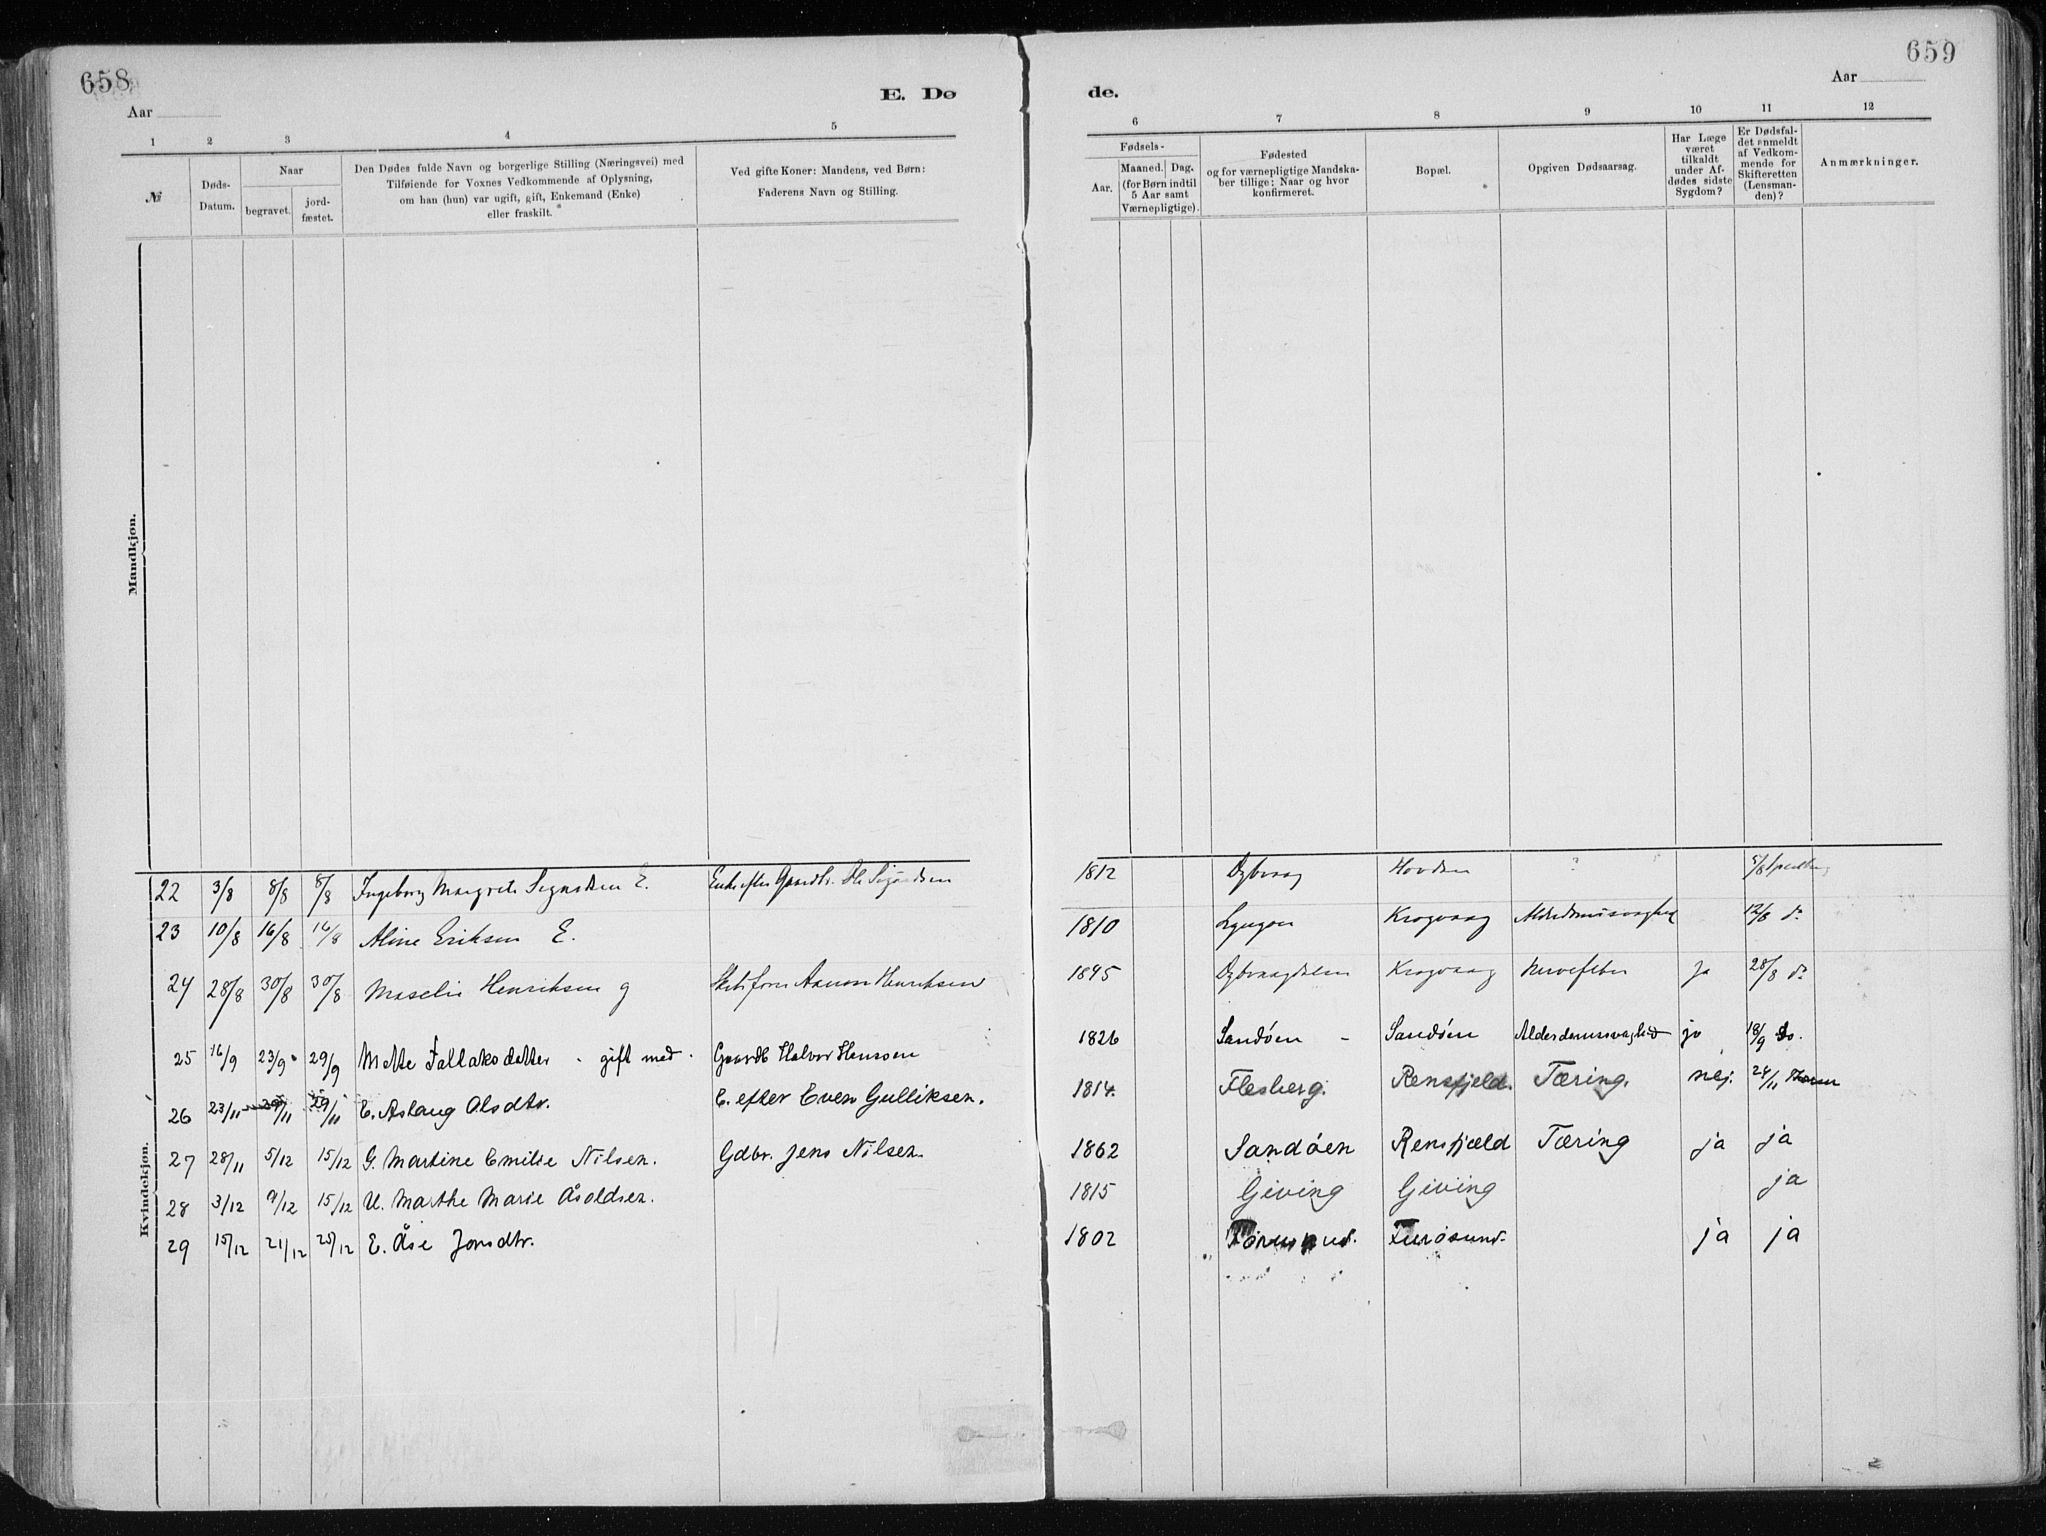 658
659
Aar
E. Dø
de.
Aar
1 2 3 4 5
6 7 8 9 10 11 12
№
Døds-
Datum.
Naar
begravet.
jord-
fæstet.
Den Dødes fulde Navn og borgerlige Stilling (Næringsvei) med
Tilføiende for Voxnes Vedkommende af Oplysning,
om han (hun) var ugift, gift, Enkemand (Enke)
eller fraskilt.
Ved gifte Koner: Mandens, ved Børn:
Faderens Navn og Stilling.
Fødsels-
Aar.
Maaned. Dag.
(for Børn indtil
5 Aar samt
Værnepligtige).
Fødested
og for værnepligtige Mandska-
ber tillige: Naar og hvor
konfirmeret.
Bopæl.
Opgiven Dødsaarsag.
Har Læge
været
tilkaldt
under Af-
dødes sidste
Sygdom?
Er Dødsfal-
det anmeldt
af Vedkom-
mende for
Skifteretten
(Lensman-
den)?
Anmærkninger.
Mandkjøn.
Kvindekjøn.
22 3/8 8/8 8/8 Ingeborg Margrete E. Enke efter Gaardbr. 1812 Dybvaag Hovden ? 5/8
23 10/8 16/8 16/8 Aline Eriksen E. 1810 Krogvaag 12/8 do
24 28/8 30/8 30/8 Henriksen g Aanon Henriksen Krogvaag Nervefeber ja 28/8 do
25 16/9 23/9 29/9 Mette gift med Gaardb Halvor Hansen 1826 Sandøen - Sandøen Alderdomssvaghed ja 18/9 do.
26 23/11 29/11 29/11 E. Aslaug Olsdtr. E. efter Even Gulliksen. 1814. Flesberg. Rensfjeld. Tæring. nej. 24/11
27 28/11 5/12 15/12 G. Martine Emilie Nilsen. Gdbr. Jens Nilsen. 1862 Sandøen Rensfjæld Tæring ja ja
28 3/12 9/12 15/12 U. Marthe Marie Åsoldsen. 1815 Giving Giving ja
29 15/12 21/12 25/12 E. Åse Jonsdtr. 1802 Furøsund. ja ja